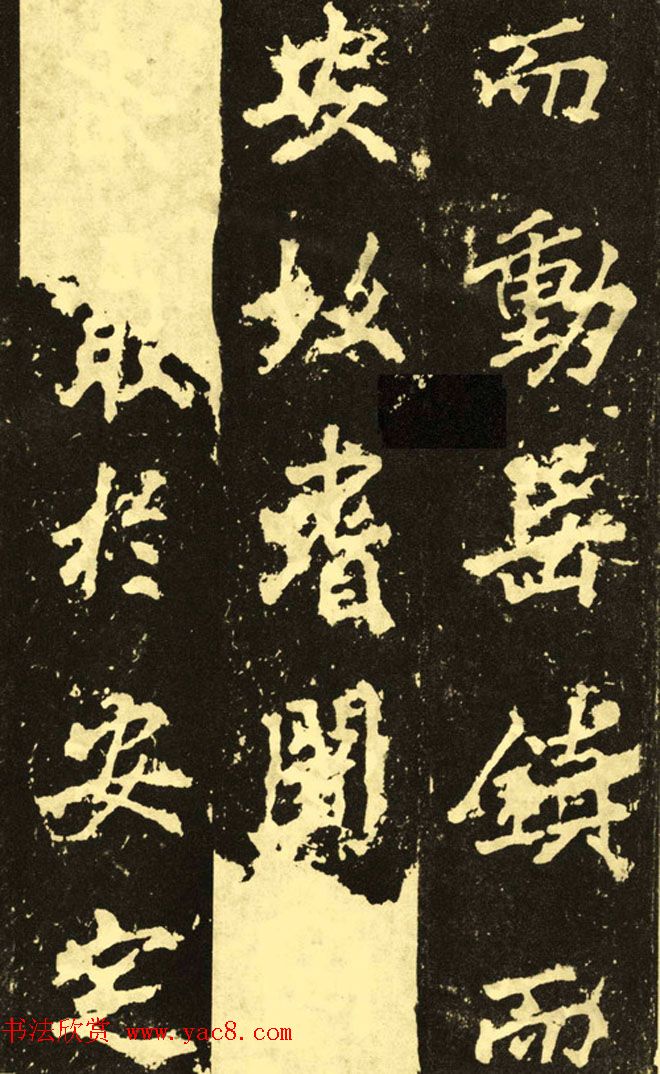 而動岳鎮而
安故耆聞
取於安定
书法欣赏 www.yac8.com